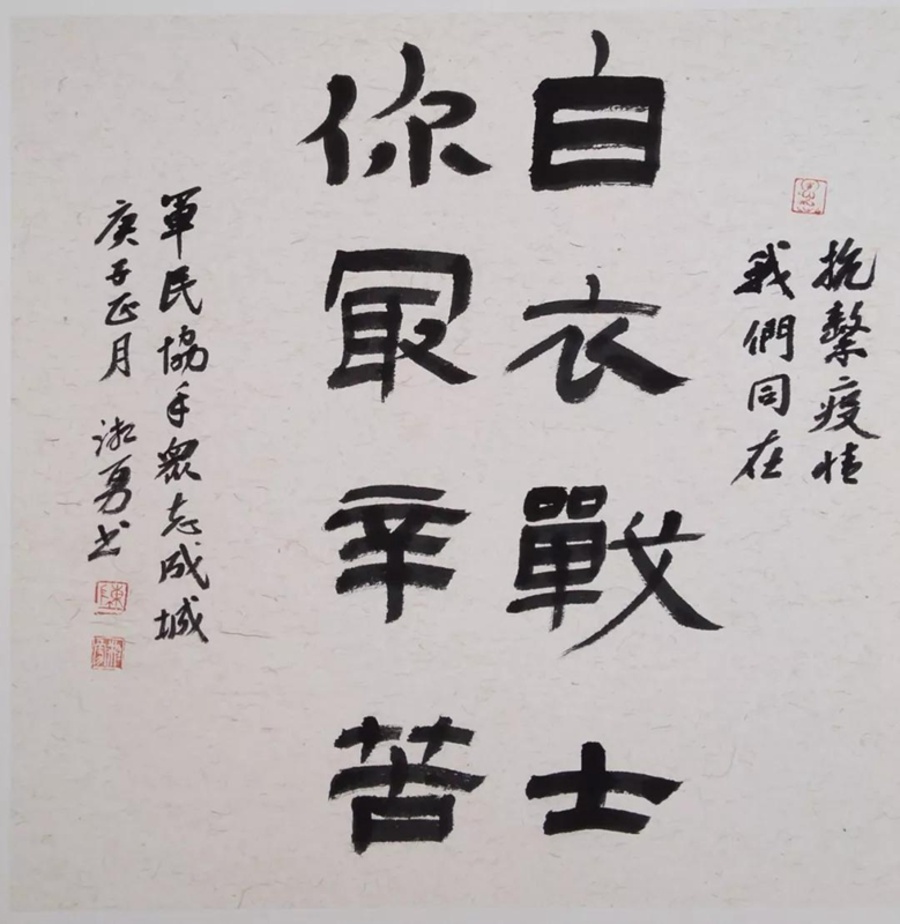 抗擊疫情
我們同在
白衣戰士
你最辛苦
軍民協手眾志成城
庚子正月 淑勇书